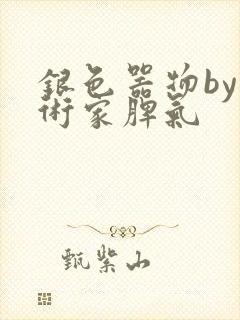 銀色器物by
術家脾氣
甄紫山